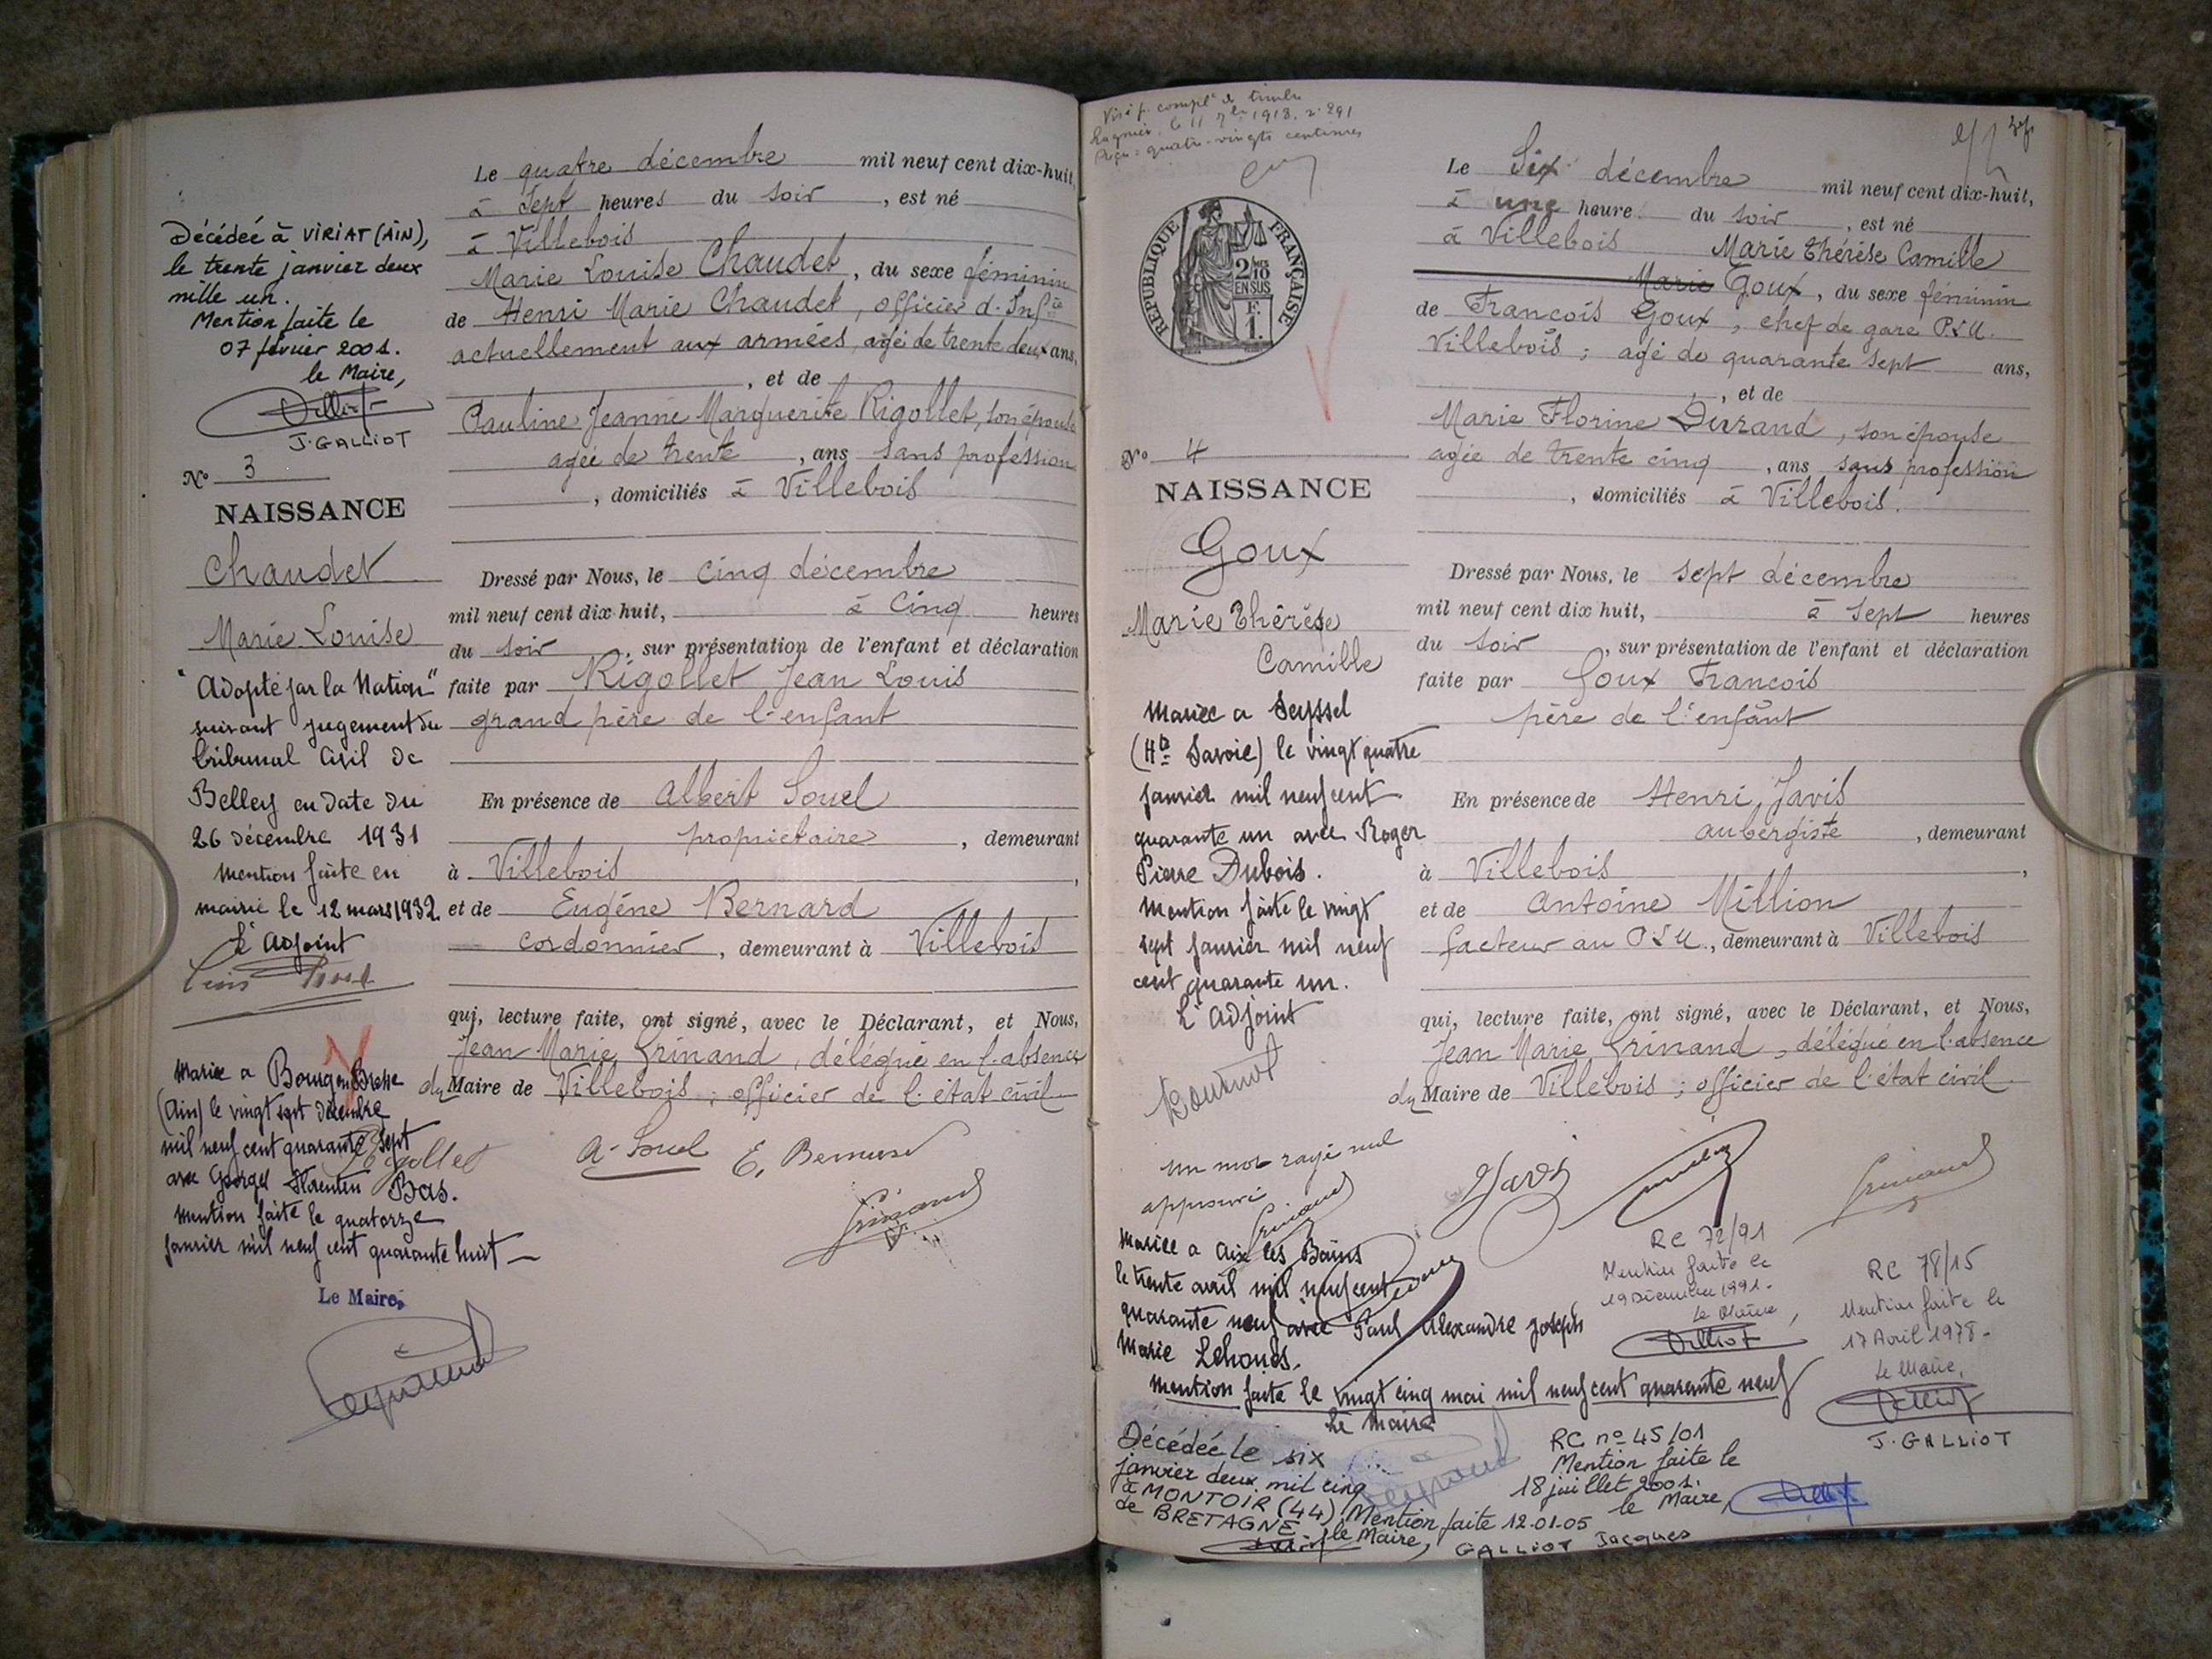 Le quatre décembre mil neuf cent dix-huit,
à Sept heures du soir, est né
à Villebois
Marie Louise Chaudet, du sexe féminin
de Henri Marie Chaudet, officier d'Infie
actuellement aux armées, agé de trente deux ans,
, et de
Pauline Jeanne Marguerite Rigollet, son épouse
agée de trente, ans sans profession
, domiciliés à Villebois
Dressé par Nous, le cinq décembre
mil neuf cent dix huit, à cinq heures
du soir, sur présentation de l'enfant et déclaration
faite par Rigollet Jean Louis
grand père de l'enfant
En présence de Albert Souel
propriétaire, demeurant
à Villebois,
et de Eugéne Bernard
cordonnier, demeurant à Villebois
qui, lecture faite, ont signé, avec le Déclarant, et Nous,
Jean Marie Grinand, délégué en l'absence
du Maire de Villebois; officier de l'état civil
Rigollet A. Souel E. Bernard
Grinand
Décédée à VIRIAT (AIN),
le trente janvier deux
mille un.
Mention faite le
07 février 2001.
le Maire,
J. GALLIOT
No 3
NAISSANCE
Chaudet
Marie Louise
"Adopté par la Nation"
suivant jugement du
tribunal Civil de
Belley en date du
26 Décembre 1931
Mention faite en
mairie le 12 mars 1932.
L'Adjoint
Mariée a Bourg en Bresse
(Ain) le vingt sept décembre
mil neuf cent quarante sept
avec Georges Florentin Bas.
Mention faite le quatorze
janvier mil neuf cent quarante huit
Le Maire,
Visé p. compl. de timbre
Lagnieu, le 11 7bre 1918.
Reçu = quatre-vingts centimes
RÉPUBLIQUE FRANÇAISE
2/10
EN SUS
F.
1.
Le Six décembre mil neuf cent dix-huit,
à une heure du soir, est né
à Villebois Marie Thérèse Camille
Marie Goux, du sexe féminin
de Francois Goux, chef de gare
Villebois; agé de quarante sept ans,
, et de
Marie Florine Durand, son épouse
agée de trente cinq, ans sans profession
, domiciliés à Villebois.
Dressé par Nous, le sept décembre
mil neuf cent dix huit, à sept heures
du soir, sur présentation de l'enfant et déclaration
faite par Goux Francois
père de l'enfant
En présence de Henri Javis
aubergiste, demeurant
à Villebois,
et de Antoine Million
facteur au, demeurant à Villebois
qui, lecture faite, ont signé, avec le Déclarant, et Nous,
Jean Marie Grinand, délégué en l'absence
du Maire de Villebois; officier de l'état civil.
No 4
NAISSANCE
Goux
Marie Thérèse
Camille
Mariée a Seyssel
(Hte Savoie) le vingt quatre
janvier mil neuf cent
quarante un avec Roger
Pierre Dubois.
Mention faite le vingt
sept janvier mil neuf
cent quarante un.
L'Adjoint
un mot rayé nul
approuvé
Grinand
Javis
Grinand
Mariée a Aix les Bains
le trente avril mil neuf cent
quarante neuf avec Paul Alexandre Joseph
Marie Lehoues.
Mention faite le vingt cinq mai mil neuf cent quarante neuf
Le Maire
RC 72/91
Mention faite le
19 Décembre 1991.
Le Maire,
RC 78/15
Mention faite le
17 Avril 1978.
Le Maire,
J. GALLIOT
RC no 45/01
Mention faite le
18 juillet 2001.
le Maire,
Décédée le six
janvier deux mil cinq
à MONTOIR (44)
de BRETAGNE
Mention faite 12.01.05
le Maire, GALLIOT Jacques